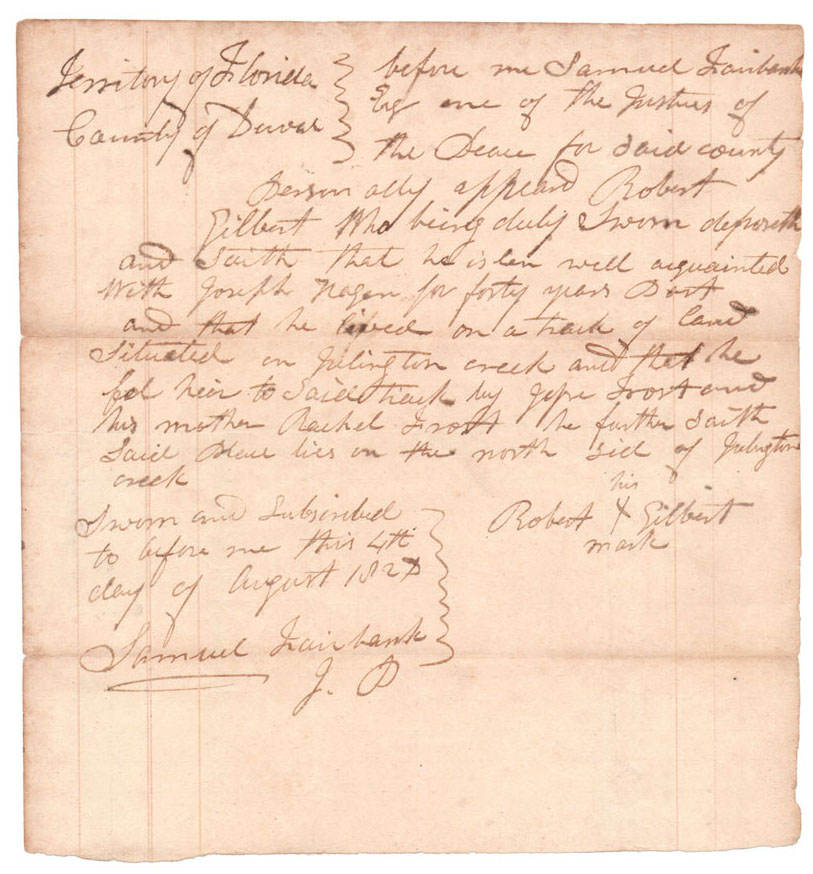 Territory of Florida } before me Samuel Fairbank
County of Duval } Esq one of the Justises of
the Peace for said county
personally appeard Robert
Gilbert Who being duly Sworn deposeth
and Saith that he is ben well acquainted
With Joseph Hagen for forty years Past
and that he lived on a track of land
Situated on Julington creek and that he
fel heir to Said track by Jesse Frost and
his mother Rachel Frost he further Saith
Said Place lies on the north Sid of Julington
creek
his
Robert X Gilbert
mark
Sworn and Subscribed
to before me this 4th
day of August
Samuel Fairbank
J. P